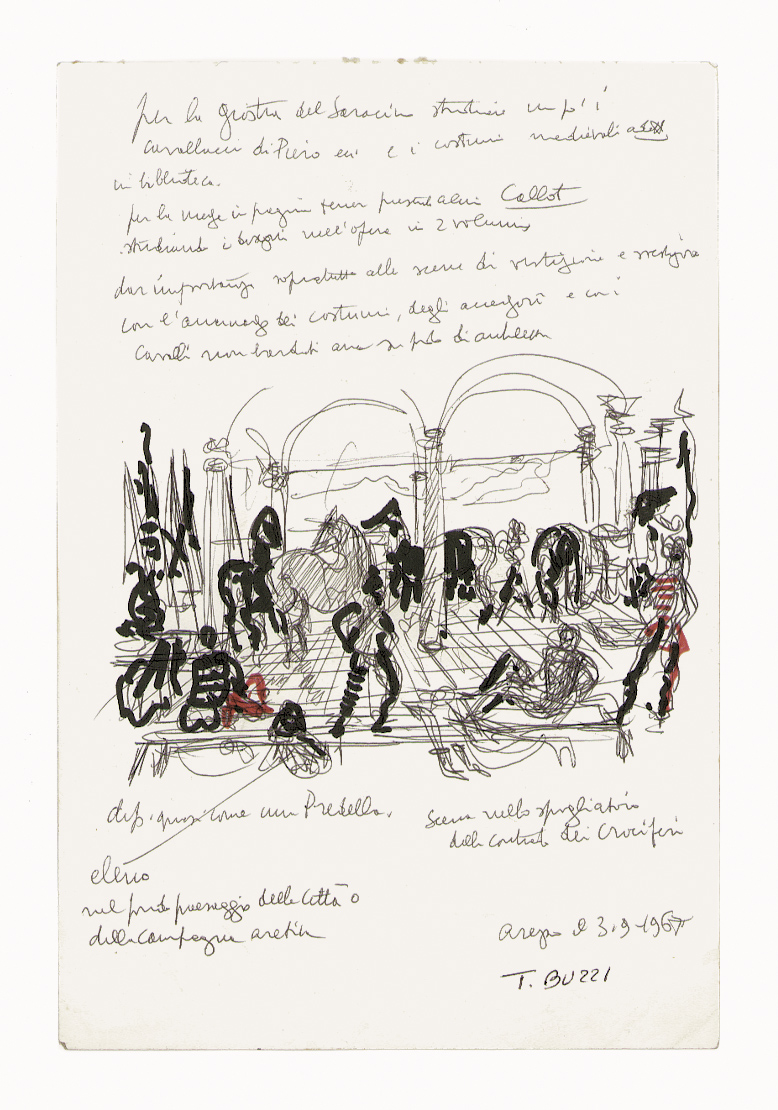 per la giostra del Saracino studiare un po' i
cavallucci di Piero ecc. e i costumi medievali
in biblioteca.
per la mise in pagina tener presente alcuni Callot
studiando i disegni nell'opera in 2 volumi
dar importanza sopratutto alle scene di vestizione e svestizione
con l'ammasso dei costumi, degli accessori e coi
cavalli non bardati ma su piede di
dip. quasi come una Predella.
Scena nello spogliatoio
della contrada dei Crociferi
elmo
nel fondo paesaggio della Città o
della Campagna aretina
Arezzo il 3.9.1967
T. BUZZI